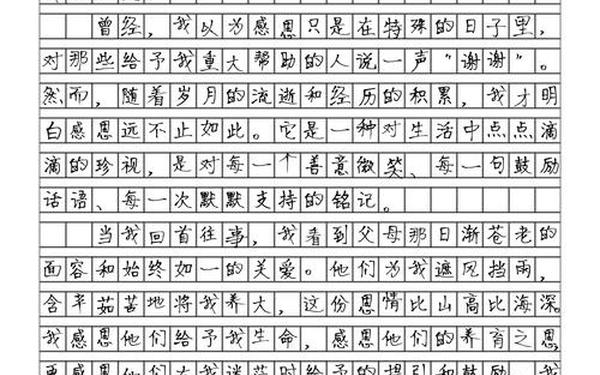 曾经，我以为感恩只是在特殊的日子里，
对那些给予我重大帮助的人说一声“谢谢”。
然而，随着岁月的流逝和经历的积累，我才明
白感恩远不止如此。它是一种对生活中点点滴
滴的珍视，是对每一个善意微笑、每一句鼓励
话语、每一次默默支持的铭记。
当我回首往事，我看到父母那日渐苍老的
面容和始终如一的关爱。他们为我遮风挡雨，
含辛茹苦地将我养大，这份恩情比山高比海深。
我感恩他们给予我生命，感恩他们的养育之恩
更感恩他们在我迷茫时给予的指引和鼓励。我